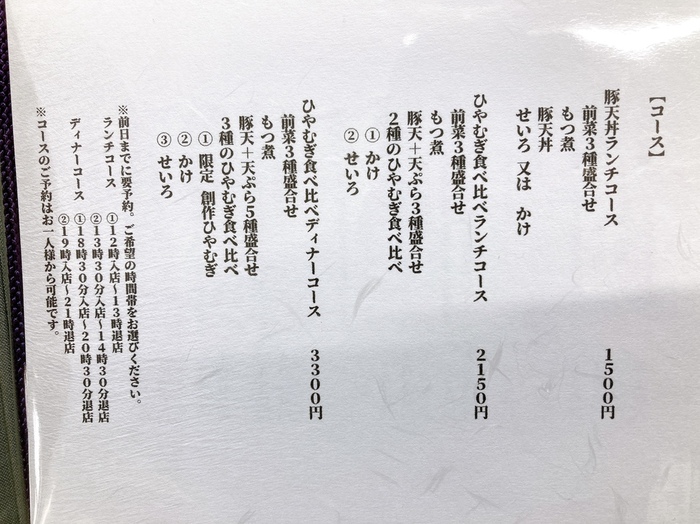 【コース】
豚天丼ランチコース 1500円
前菜3種盛合せ
もつ煮
豚天丼
せいろ 又は かけ
ひやむぎ食べ比べランチコース 2150円
前菜3種盛合せ
もつ煮
豚天＋天ぷら3種盛合せ
2種のひやむぎ食べ比べ
① かけ
② せいろ
ひやむぎ食べ比べディナーコース 3300円
前菜3種盛合せ
もつ煮
豚天＋天ぷら5種盛合せ
3種のひやむぎ食べ比べ
① 限定 創作ひやむぎ
② かけ
③ せいろ
※前日までに要予約。ご希望の時間帯をお選びください。
ランチコース ①12時入店～13時退店
②13時30分入店～14時30分退店
ディナーコース ①18時30分入店～20時30分退店
②19時入店～21時退店
※コースのご予約はお一人様から可能です。